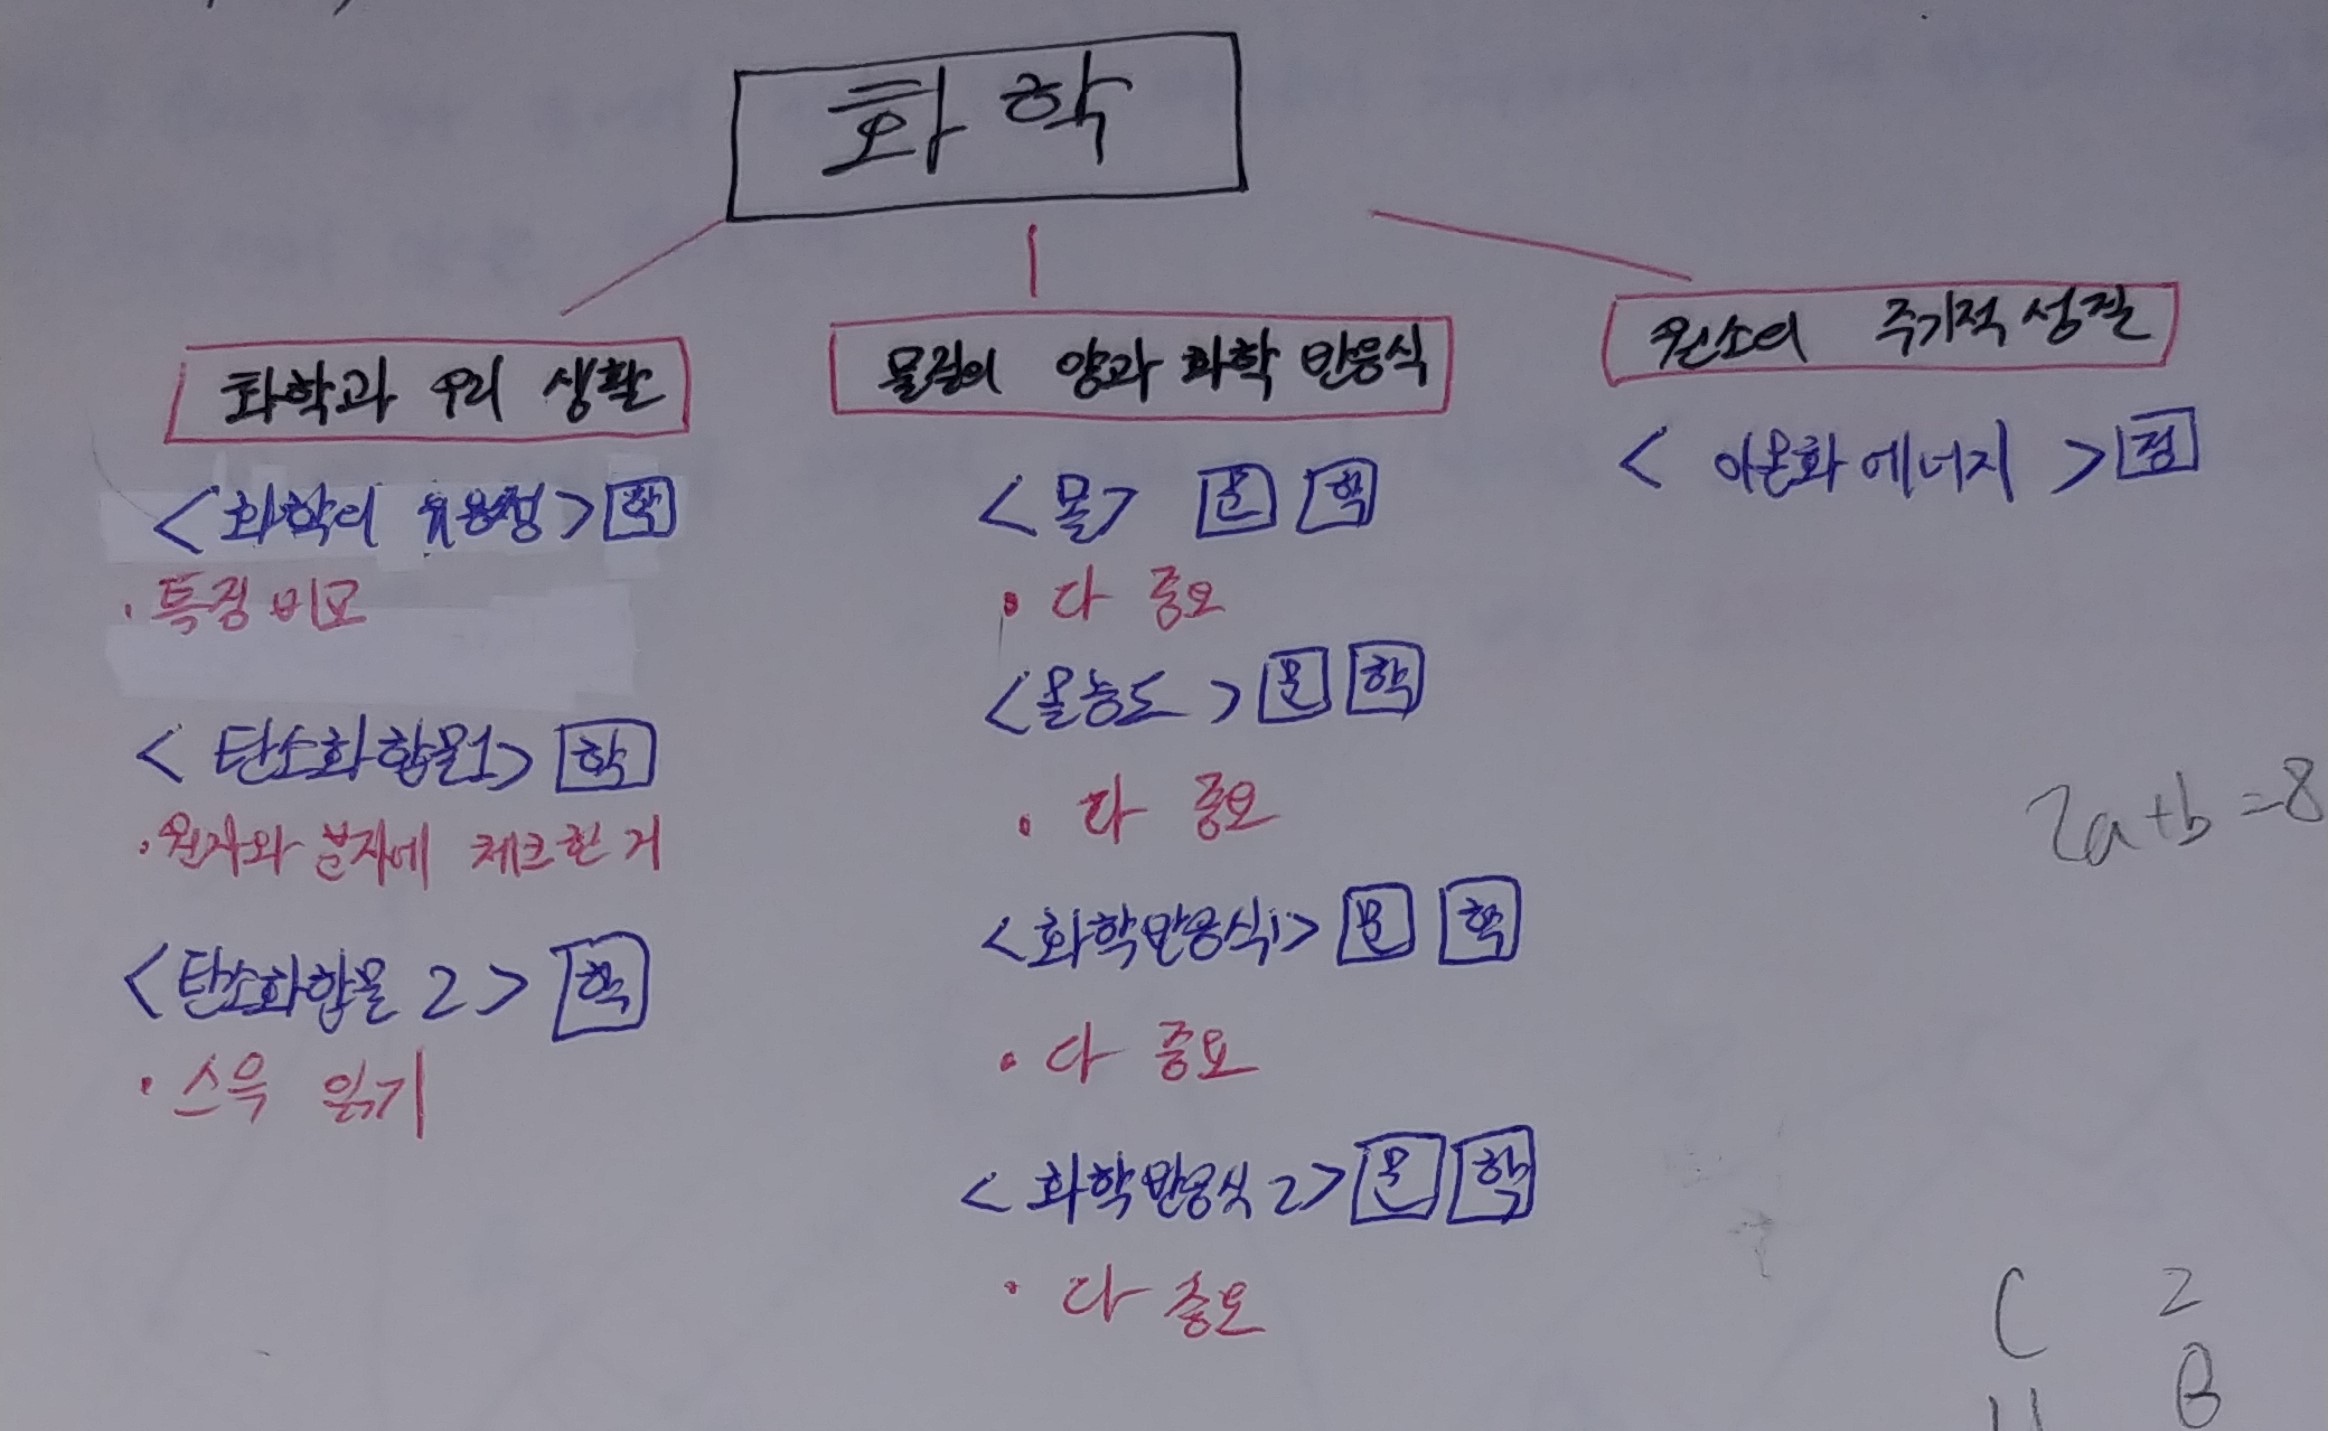 화학
화학과 우리 생활
<화학의 유용성> 학
· 특징 비교
<탄소화합물1> 학
· 원자와 분자에 체크한 거
<탄소화합물 2> 학
· 스윽 읽기
물질의 양과 화학 반응식
<몰> 문 학
· 다 중요
<몰농도> 문 학
· 다 중요
<화학반응식1> 문 학
· 다 중요
<화학반응식2> 문 학
· 다 중요
원소의 주기적 성질
<이온화 에너지>
2a+b=8
C 2